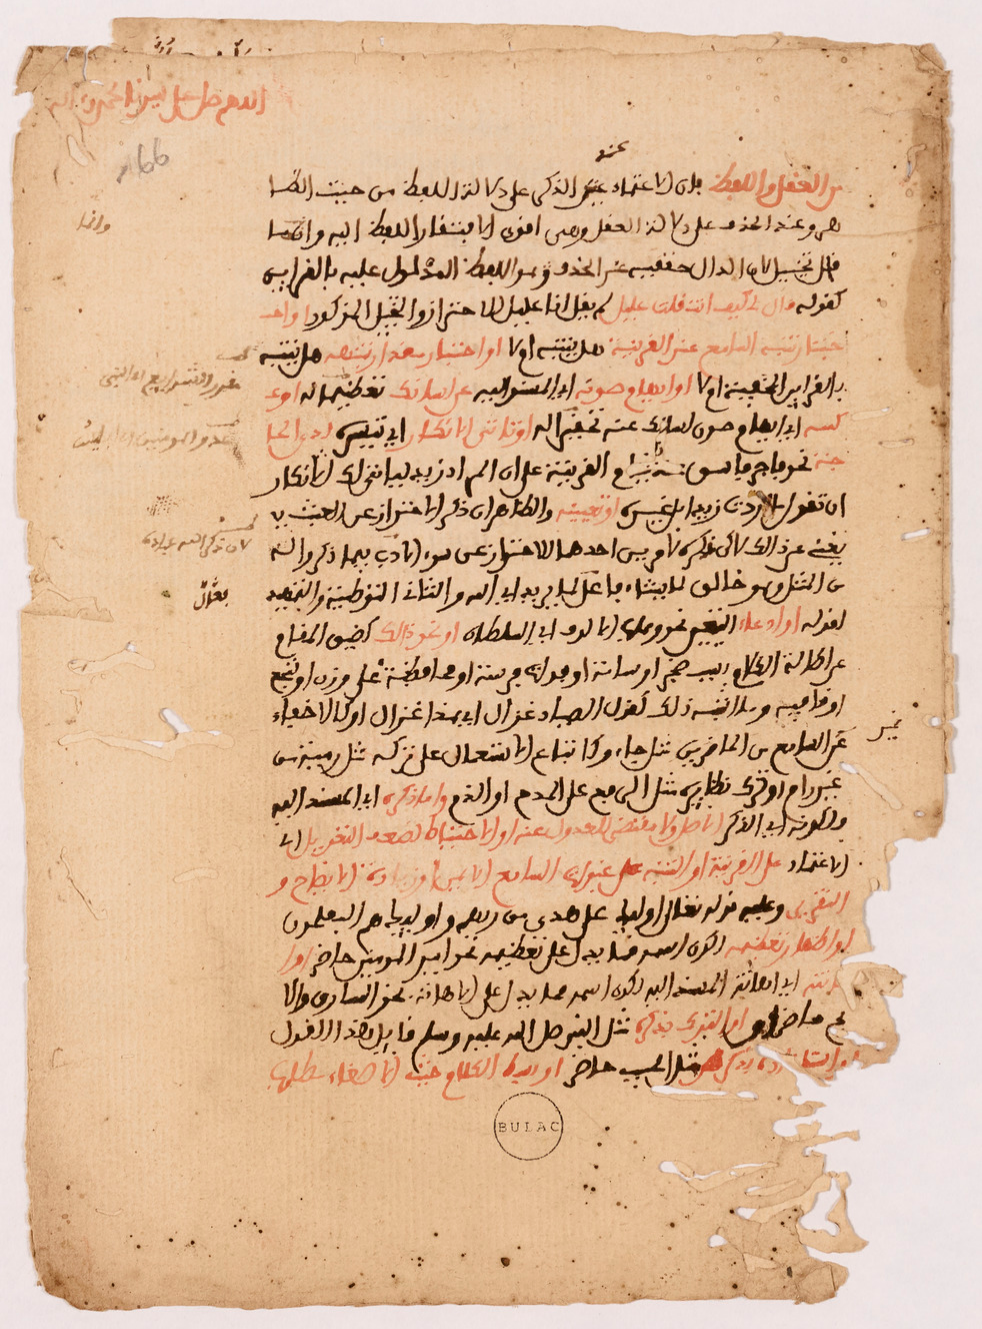 اللهم صل على سيدنا محمد واله
166
من العقل واللفظ فان الاعتماد عند الذكر على دلالة اللفظ من حيث الظا
هر وعند الحذف على دلالة العقل وهى اقوى لافتقار اللفظ اليه وانما
قال تخييل لان الدال حقيقة عند الحذف هو اللفظ المدلول عليه بالقراين
كقوله قال لى كيف انت قلت عليل لم يقل انا عليل للاحتراز والتخييل المذكور او
اختبار تنبه السامع عند القرينة هل يتنبه ام لا او اختبار مقدار تنبهه هل يتنبه
بالقراين الخفية ام لا او ايهام صونه اي المسند اليه عن لسانك تعظيما له او عـ
كسه اي ايهام صون لسانك عنه تحقيرا له او تاتى الانكار اي تيسره لدى الحا
جة نحو فاجر فاسق عند قيام القرينة على ان المراد زيد ليتاتى لك الانكار
ان تقول ما اردت زيدا بل غيره او تعينه والظاهر ان ذكر الاحتراز عن العبث
يغنى عن ذلك لاكن ذكره لامرين احدهما الاحتراز عن سوء الادب فيما ذكروا له
من المثل وهو خالق لما يشاء فاعل لما يريد اي الله والثانى التوطئة والتمهيد
لقوله او ادعاء التعين نحو وهاب الالوف اي السلطان او نحو ذالك كضيق المقام
عن اطالة الكلام بسبب ضجر او سامة او فوات فرصة او محافظة على وزن او سجع
او قافية وما اشبه ذلك كقول الصياد غزال اي هذا غزال او كالاخفاء
عن السامع من الحاضرين مثل جاء وكاتباع الاستعمال على تركه مثل رمية من
غير رام او ترك نظايره مثل الرفع على المدح او الذم واما ذكره اي المسند اليه
فلكونه اي الذكر الاصل ولا مقتضى للعدول عنه او الاحتياط لضعف التعويل اي
الاعتماد على القرينة او التنبيه على غباوة السامع او زيادة الايضاح و
التقرير وعليه قوله تعالى اوليك على هدى من ربهم واوليك هم المفلحون
او اظهار تعظيمه لكون اسمه مما يدل على تعظيمه نحو امير المومنين حاضر او ا
هانته اي اهانة المسند اليه لكون اسمه مما يدل على الاهانة نحو السارق
حاضر او التبرك بذكره مثل النبى صلى الله عليه وسلم قايل هذا القول
او استلذاذه مثل الحبيب حاضر او بسط الكلام حيث الاصغاء مطلوب
وانما
تعالى
غير
BULAC